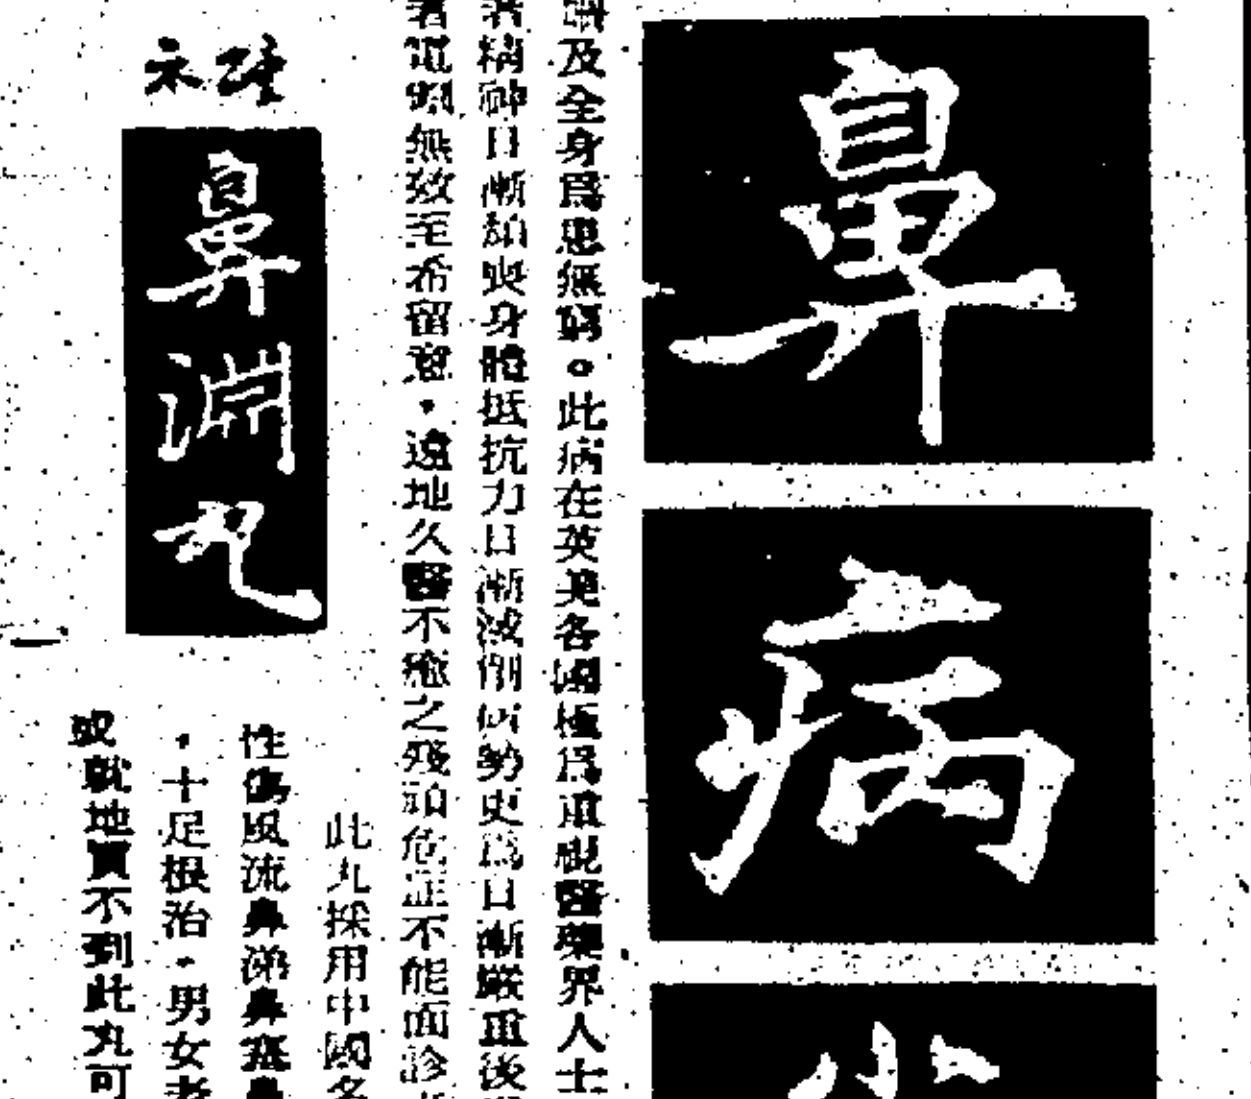 鼻病
及全身為患無窮。此病在英美各國極為重視醫藥界人士
精神日漸頹喪身體抵抗力日漸減削病勢更為日漸嚴重後
無效至希留意・遠地久醫不癒之殘頑危症不能面診
鼻淵丸
此丸採用中國名
性傷風流鼻涕鼻塞鼻
・十足根治・男女老
或就地買不到此丸可